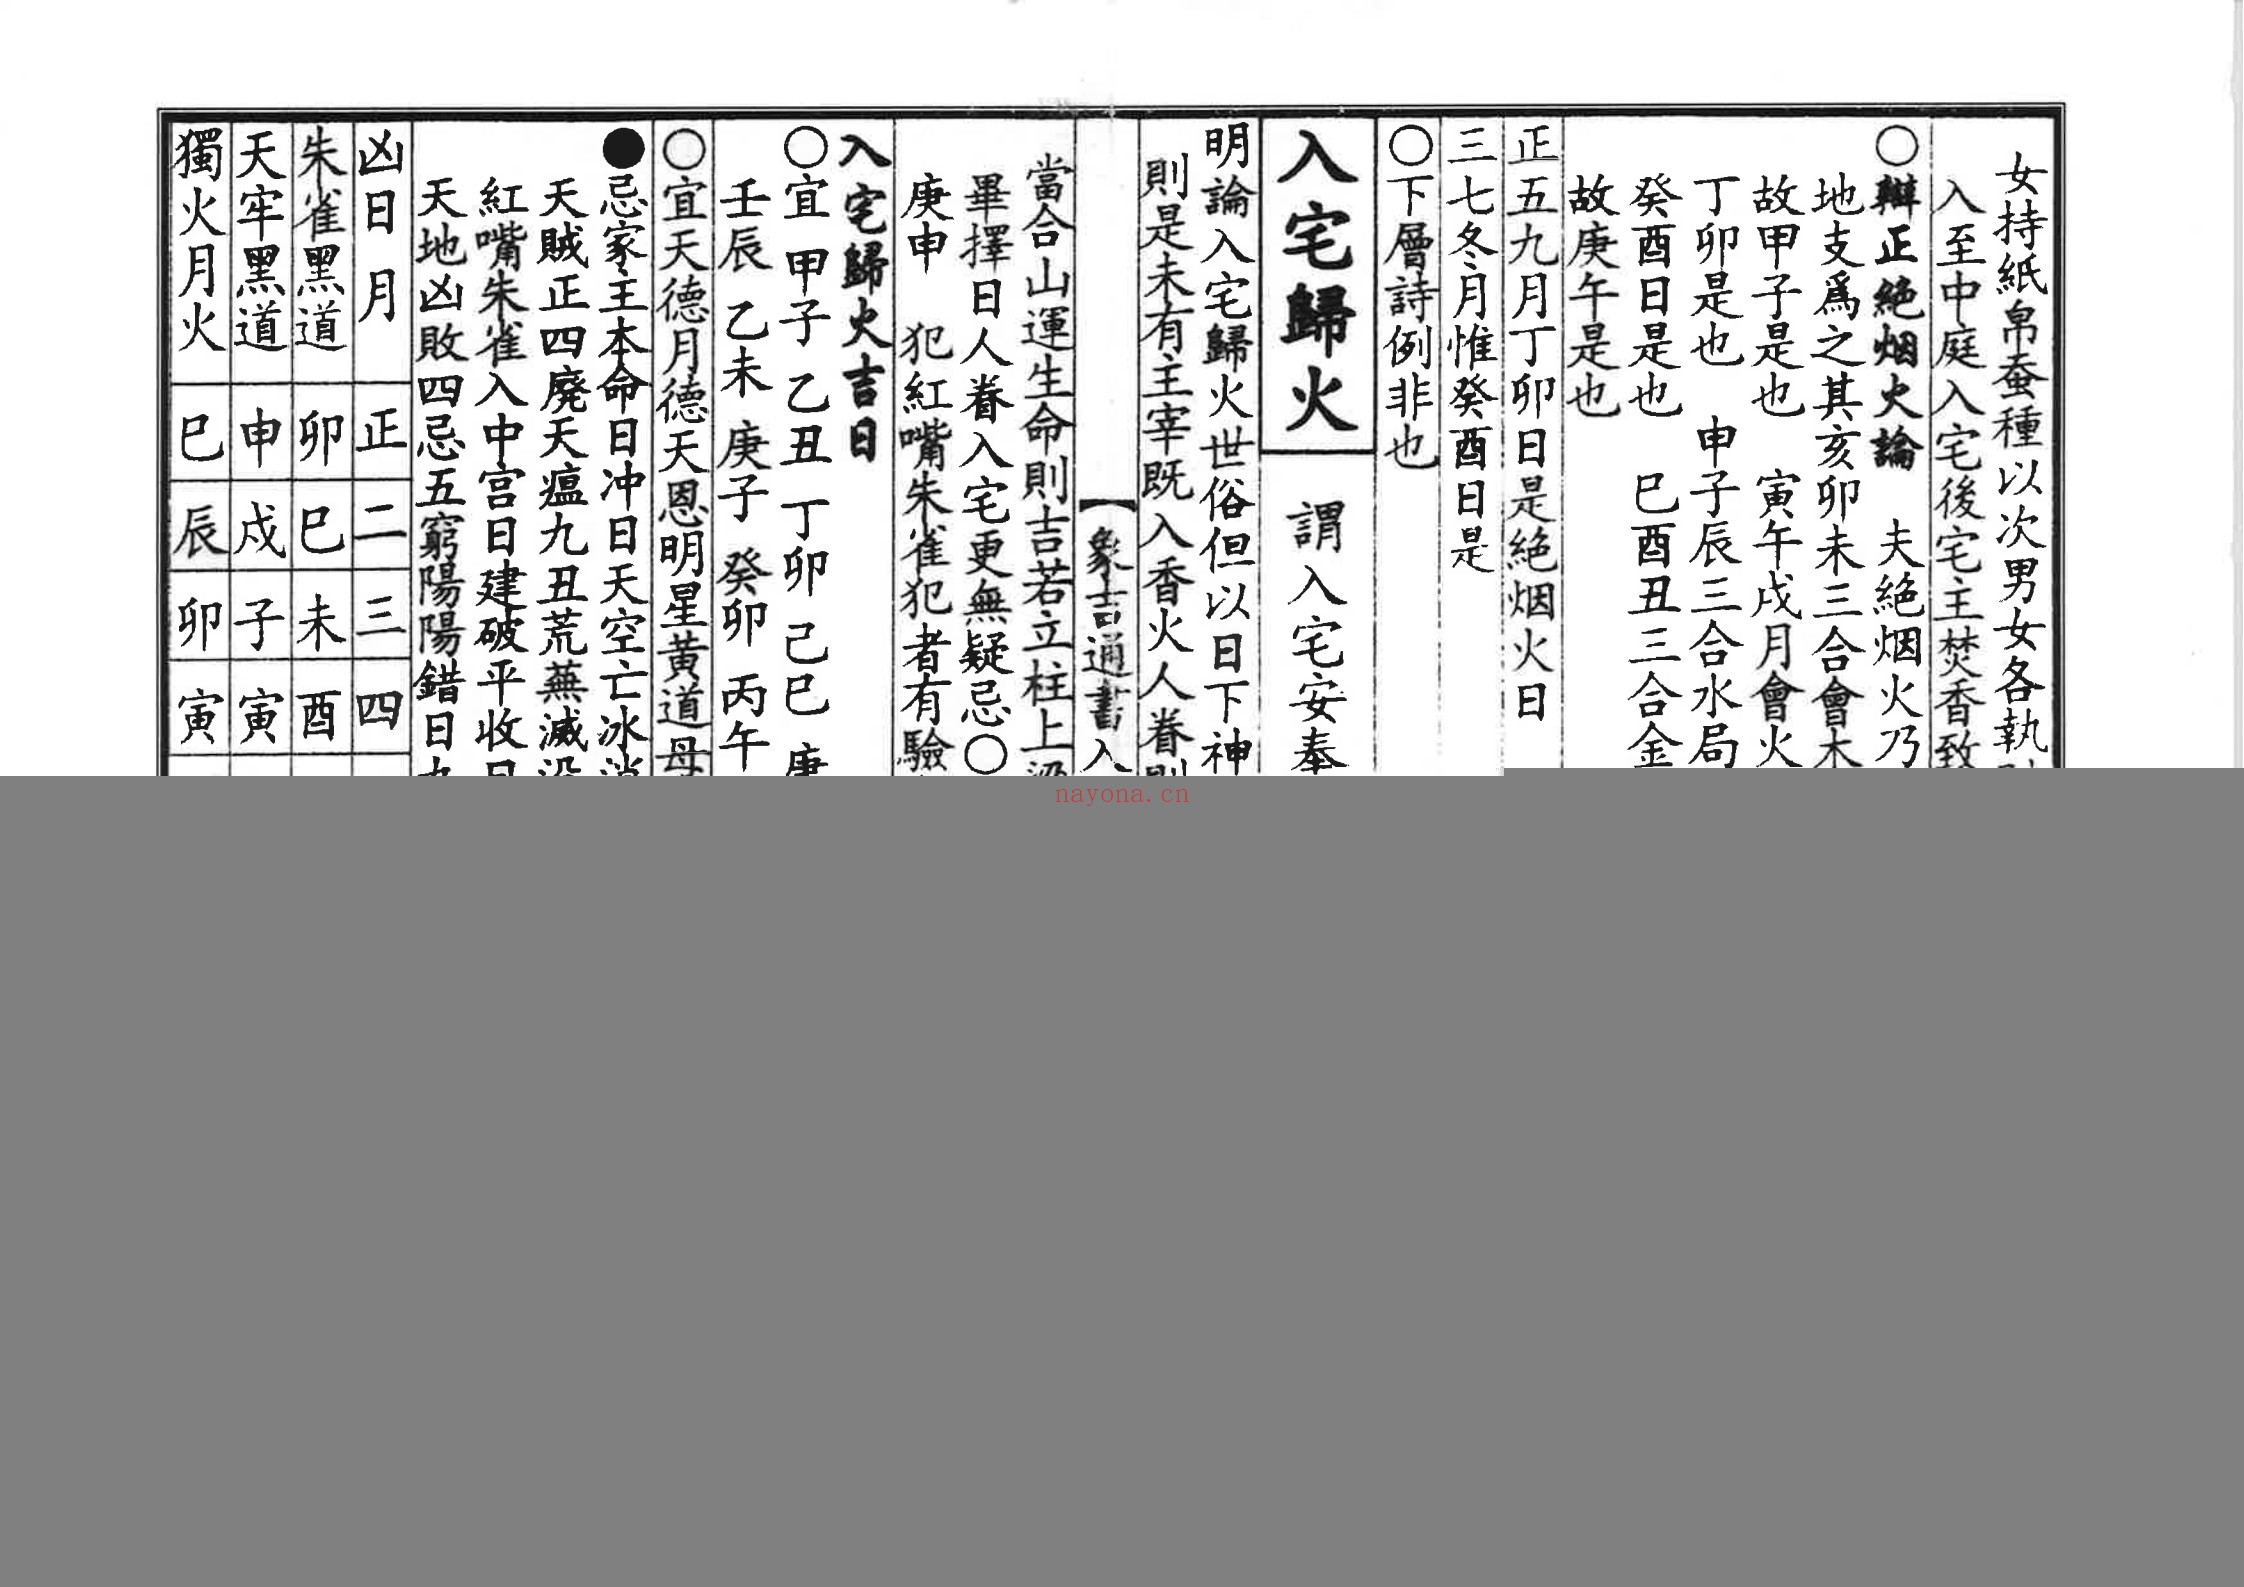 女持紙帛蚕種以次男女各執
入至中庭入宅後宅主焚香致
○辯正絶烟火論　夫絶烟火乃
地支爲之其亥卯未三合會木
故甲子是也　寅午戌月會火
丁卯是也　申子辰三合水局
癸酉日是也　巳酉丑三合金
故庚午是也
正五九月丁卯日是絶烟火日
三七冬月惟癸酉日是
○下層詩例非也
入宅歸火　謂入宅安奉
明論入宅歸火世俗但以日下神
則是未有主宰既入香火人眷則
【象吉通書入
當合山運生命則吉若立柱上梁
畢擇日人眷入宅更無疑忌○
庚申　犯紅嘴朱雀犯者有驗
入宅歸火吉日
○宜甲子 乙丑 丁卯 己巳 庚
壬辰 乙未 庚子 癸卯 丙午
○宜天德月德天恩明星黃道母
●忌家主本命日冲日天空亡冰消
天賊正四廢天瘟九丑荒蕪滅没
紅嘴朱雀入中宮日建破平收日
天地凶敗四忌五窮陽陽錯日九
凶日月 正 二 三 四
朱雀黑道 卯 巳 未 酉
天牢黑道 申 戌 子 寅
獨火月火 巳 辰 卯 寅
nayona.cn